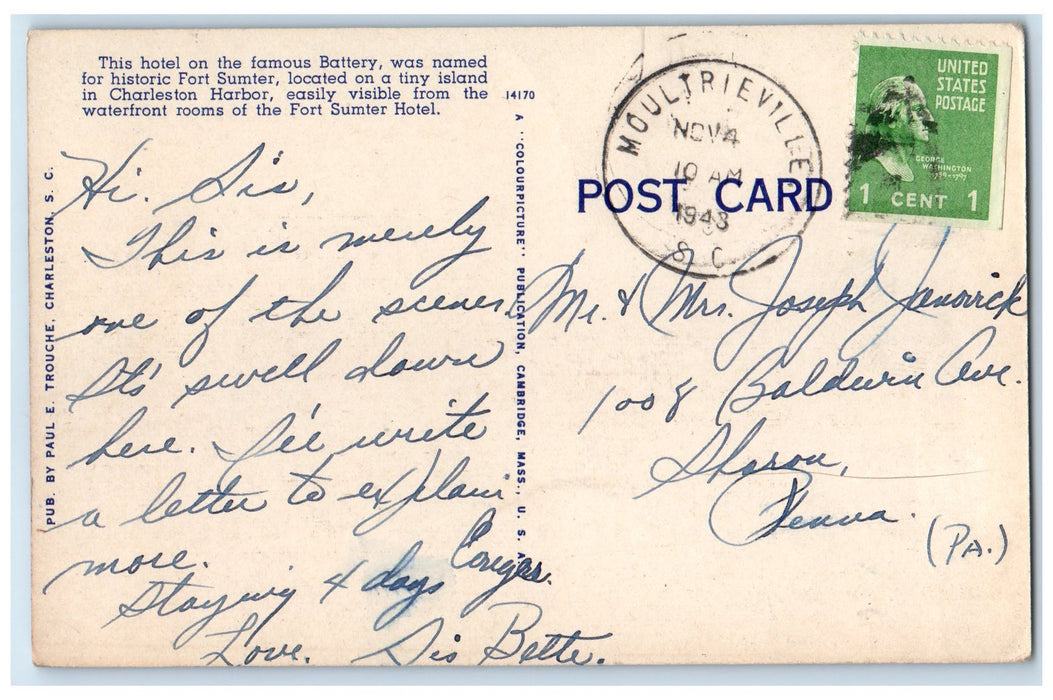 This hotel on the famous Battery, was named
for historic Fort Sumter, located on a tiny island
in Charleston Harbor, easily visible from the
waterfront rooms of the Fort Sumter Hotel.
14170
PUB. BY PAUL E. TROUCHE, CHARLESTON, S. C.
A "COLOURPICTURE" PUBLICATION, CAMBRIDGE, MASS., U. S. A.
Hi. Sis,
This is merely
one of the scenes.
It's swell down
here. I'll write
a letter to explain
more.
Staying 4 days
Love. Sis Bette.
POST CARD
MOULTRIEVILLE
NOV 4
10 AM
1943
S. C.
UNITED
STATES
POSTAGE
GEORGE
WASHINGTON
1 CENT 1
Mr. & Mrs. Joseph Janovick
1008 Baldwin Ave.
Sharon,
Penna.
(PA.)